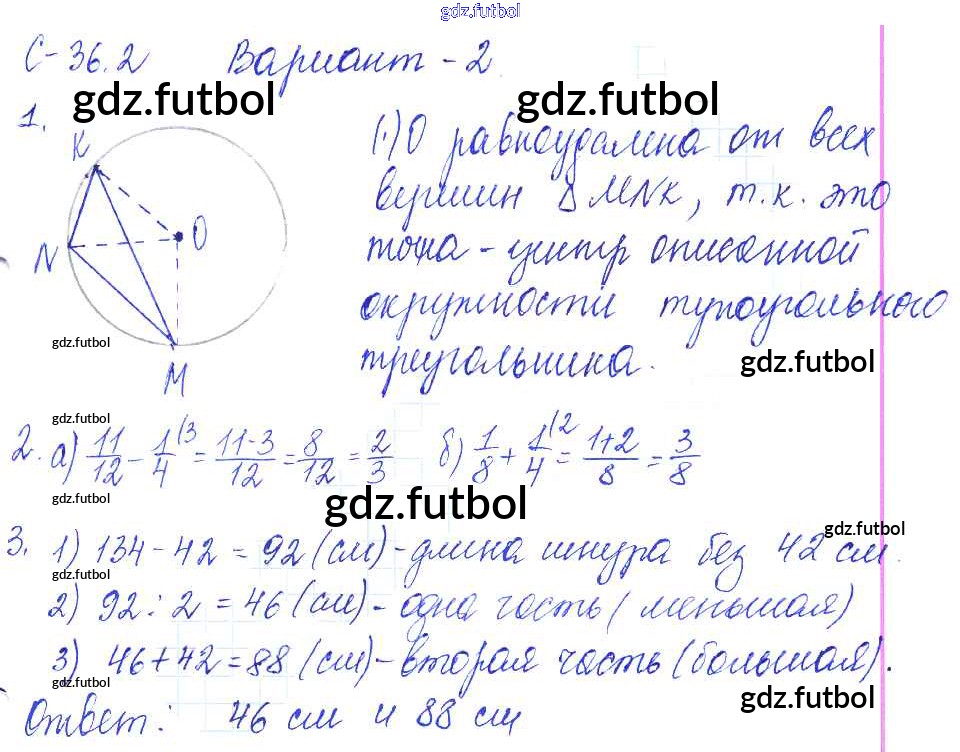 gdz.futbol
С-36.2 Вариант - 2
gdz.futbol gdz.futbol
1.
K
(·) О равноудалена от всех
вершин Δ MNK, т.к. это
O
N
точка - центр описанной
окружности тупоугольного
gdz.futbol
треугольника.
gdz.futbol
M
gdz.futbol
2. а) 11/12 - 1/4 (3 = 11-3/12 = 8/12 = 2/3 б) 1/8 + 1/4 (2 = 1+2/8 = 3/8
gdz.futbol gdz.futbol
gdz.futbol
3. 1) 134 - 42 = 92 (см) - длина шнура без 42 см.
gdz.futbol
2) 92 : 2 = 46 (см) - одна часть (меньшая)
3) 46 + 42 = 88 (см) - вторая часть (большая).
gdz.futbol gdz.futbol
Ответ: 46 см и 88 см